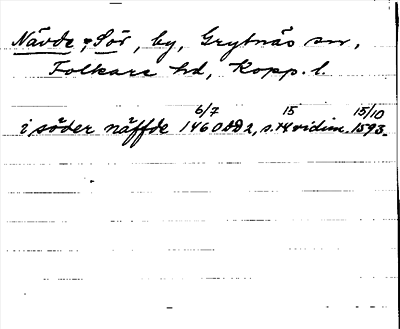 Nävde, Sör, by, Grytnäs sn,
Folkare hd, Kopp. l.
6/7 15 15/10
i söder näffde 1460 DD 2, s. 74 vidim. 1593.